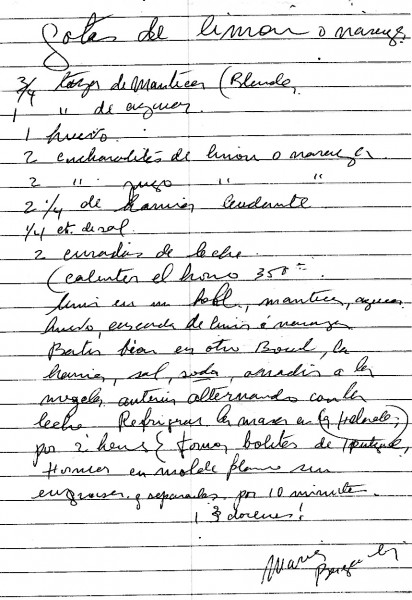 Gotas de limon o naranja
3/4 taza de manteca (Blanda,
1 " de azucar.
1 huevo.
2 cucharadites de limon o naranja
2 " jugo " "
2 1/4 de harina leudante
1/4 ct. de sal
2 de leche
(calenter el horno 350°
en un bowl, manteca, azucar
huevo, cascara de limon ó naranja
Batir bien en otro Bowl, la
harina, sal, soda, anadir a la
mezcla anterior alternando con la
leche Refrigerar la masa en la Heladera)
por 2 horas formar bolites de 1 pulgada,
Hornear en molde plano sin
engrasar y separadas por 10 minutos.
1 3 docenas!
Maria